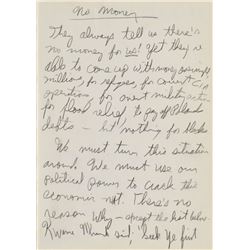 No Money
They always tell us there's
no money for us! Yet they're
able to come up with money overnight
millions, for spies, for covert CIA
operations, for overt military action
for flood relief, to pay off Poland
debts — but nothing for blacks
We must turn this situation
around. We must use our
political power to crack the
economic nut. There's no
reason why — except the hint below
Kwame Nkrumah said, "Seek ye first